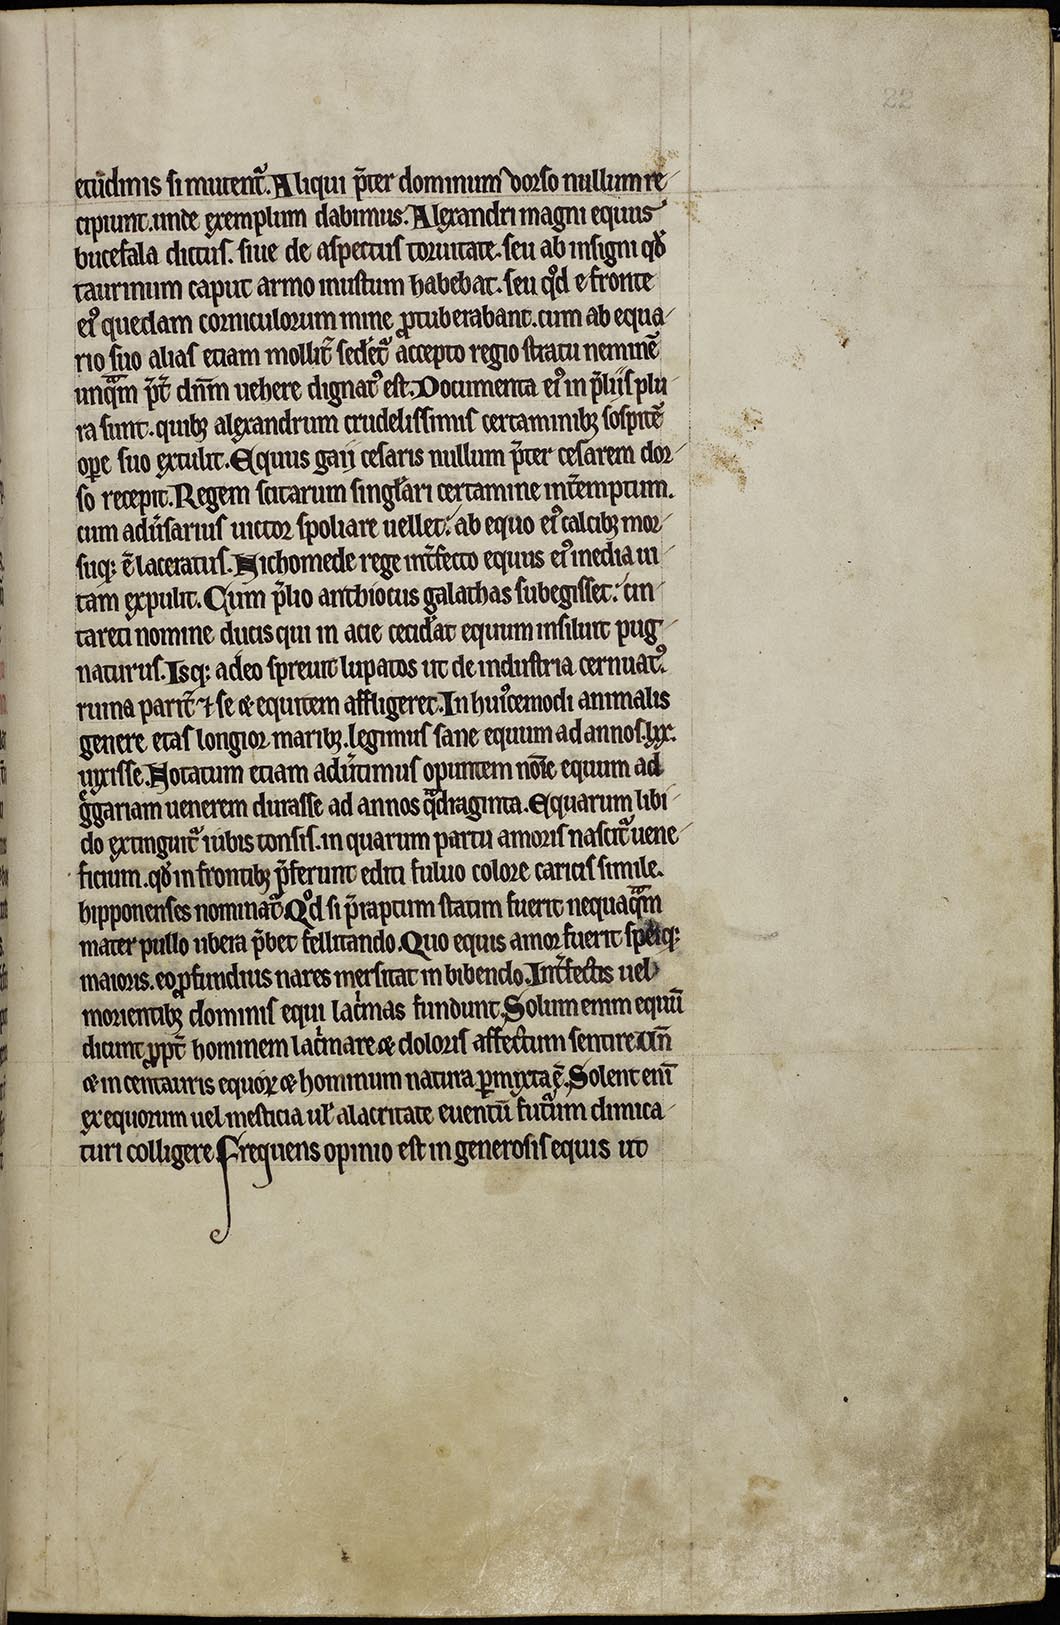 22
etudinis si mutent᷑. Aliqui p̄ter dominum dorso nullum re
cipiunt. unde exemplum dabimus. Alexandri magni equus
bucefala dictus. siue de aspectus toruitate. seu ab insigni qd̕
taurinum caput armo inustum habebat. seu qͦd e fronte
ei᷒ quedam corniculorum mine ꝓtuberabant. cum ab equa
rio suo alias etiam mollit̄ sederet᷑ accepto regio stratu neminē
unqᵃm p̄t̄ dn̄m uehere dignat᷒ est. Documenta ei᷒ in p̄liis plu
ra sunt. quibꝫ alexandrum crudelissimis certaminibꝫ sospitē
ope suo extulit. Equus gaij cesaris nullum p̄ter cesarem dor
so recepit. Regem scitarum singl̕ari certamine int̄emptum.
cum adu̕sarius uictor spoliare uellet. ab equo ei᷒ calcibꝫ mor
suqꝫ ē laceratus. Nichomede rege int̄fecto equus ei᷒ inedia ui
tam expulit. Cum p̄lio anthiocus galathas subegisset. cin
tareti nomine ducis qui in acie cecid̕at equum insiluit pug
naturus. Isqꝫ adeo spreuit lupatos ut de industria cernuat᷒.
ruina parit̄ ⁊ se & equitem affligeret. In hui᷒cemodi animalis
genere etas longior maribꝫ. legimus sane equum ad annos. lxx.
uixisse. Notatum etiam adu̕timus opuntem noīe equum ad
gͤgariam uenerem durasse ad annos qᵃdraginta. Equarum libi
do extinguit᷑ iubis tonsis. in quarum partu amoris nascit᷑ uene
ficium. qd̕ in frontibꝫ p̄ferunt editi fuluo colore caricis simile.
hipponenses nominat᷑. Qͦd si p̄raptum statim fuerit nequaqᵃm
mater pullo ubera p̄bet fellitando. Quo equis amor fuerit speiqꝫ
maioris. eo ꝓfundius nares mersitat in bibendo. Int̄fectis uel
morientibꝫ dominis equi lacͥmas fundunt. Solum enim equū
dicunt ꝓpt̄ hominem lacͥmare & doloris affectum sentire. Un̄
& in centauris equoꝝ & hominum natura ꝑmixta ē. Solent enī
ex equorum uel mesticia ul̕ alacritate euentū futᷓum dimica
turi colligere Frequens opinio est in generosis equis ut